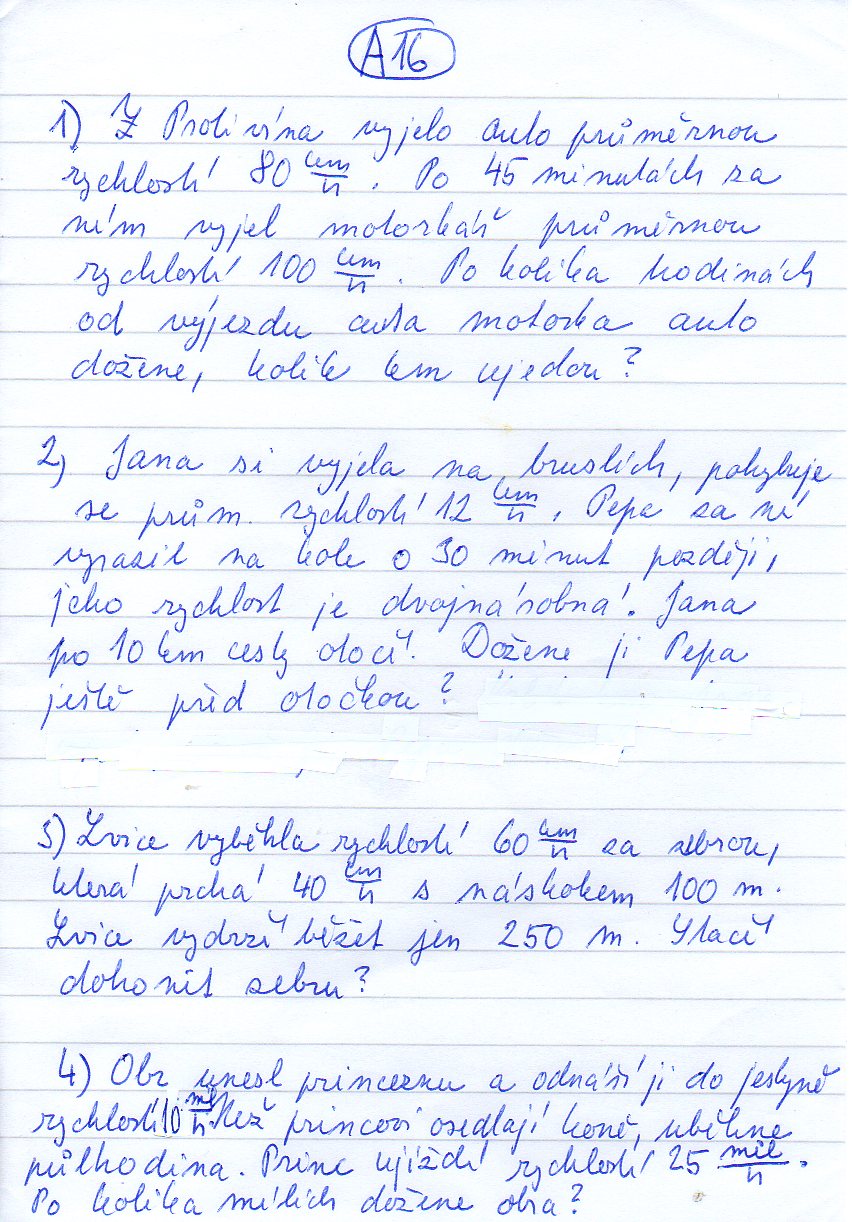 A16
1) Z Protivína vyjelo auto průměrnou
rychlostí 80 km/h. Po 45 minutách za
ním vyjel motorkář průměrnou
rychlostí 100 km/h. Po kolika hodinách
od výjezdu auta motorka auto
dožene, kolik km ujedou?
2) Jana si vyjela na bruslích, pohybuje
se prům. rychlostí 12 km/h, Pepa za ní
vyrazil na kole o 30 minut později,
jeho rychlost je dvojnásobná. Jana
po 10 km cesty otočí. Dožene ji Pepa
ještě před otočkou?
3) Lvice vyběhla rychlostí 60 km/h za zebrou,
která prchá 40 km/h s náskokem 100 m.
Lvice vydrží běžet jen 250 m. Stačí
dohonit zebru?
4) Obr unesl princeznu a odnáší ji do jeskyně
rychlostí 10 mil/h. Než princovi osedlají koně, uběhne
půlhodina. Princ ujíždí rychlostí 25 mil/h.
Po kolika mílích dožene obra?